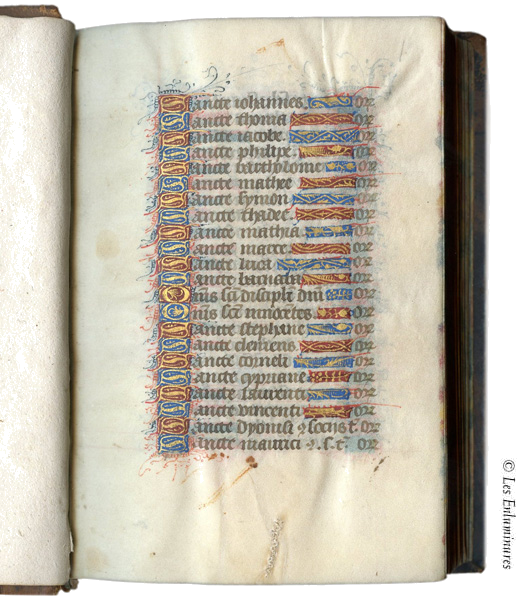 Sancte iohannes. or
Sancte thoma or
Sancte iacobe. or
Sancte philipe. or
Sancte bartholome or
Sancte mathee or
Sancte symon or
Sancte thadee or
Sancte mathia or
Sancte marce or
Sancte luca or
Sancte barnaba or
Omis sci discipli dni or
Omis sci innocetes or
Sancte stephane or
Sancte clemens or
Sancte corneli or
Sancte cypriane or
Sancte laurenti or
Sancte vincenti or
Sancte dyonisi ⁊ socus t. or
Sancte maurici ⁊. s. t. or
© Les Enluminures